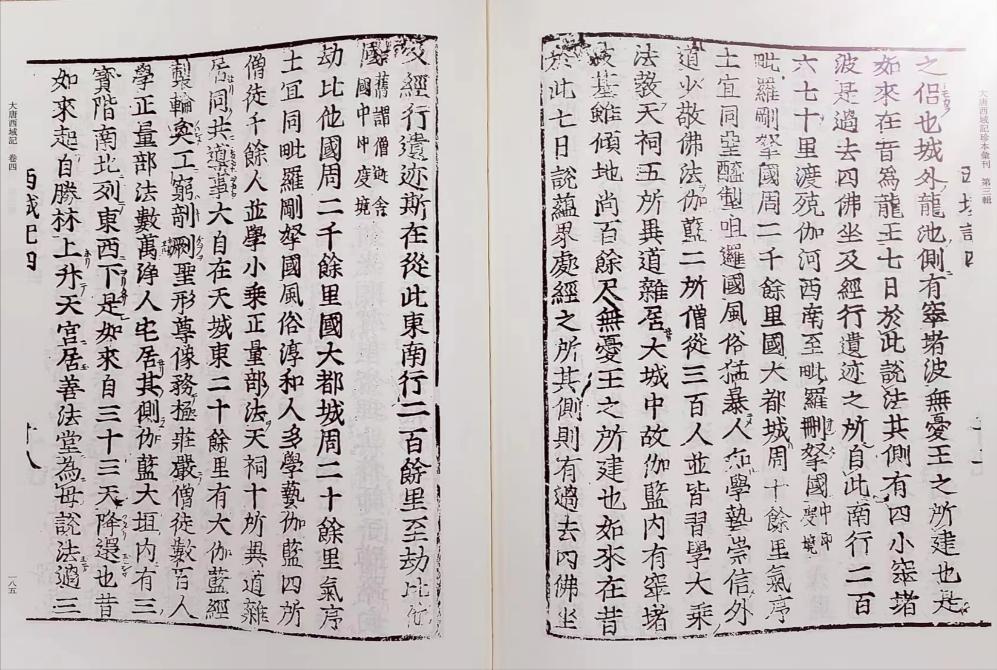 大唐西域記珍本彙刊 第三輯
之侶也城外龍池側有窣堵波無憂王之所建也是
如來在昔為龍王七日於此說法其側有四小窣堵
波是過去四佛坐及經行遺迹之所自此南行二百
六七十里渡殑伽河西南至毗羅刪拏國中印度境
毗羅刪拏國周二千餘里國大都城周十餘里氣序
土宜同堊醯掣呾邏國風俗猛暴人知學藝崇信外
道少敬佛法伽藍二所僧徒三百人並皆習學大乘
法教天祠五所異道雜居大城中故伽藍內有窣堵
波基雖傾地尚百餘尺無憂王之所建也如來在昔
於此七日說蘊界處經之所其側則有過去四佛坐
及經行遺迹斯在從此東南行二百餘里至劫比他
國舊謂僧迦舍國中印度境
劫比他國周二千餘里國大都城周二十餘里氣序
土宜同毗羅刪拏國風俗淳和人多學藝伽藍四所
僧徒千餘人並學小乘正量部法天祠十所異道雜
居同共遵事大自在天城東二十餘里有大伽藍經
製輪奐工窮剞劂聖形尊像務極莊嚴僧徒數百人
學正量部法數萬淨人宅居其側伽藍大垣內有三
寶階南北列東西下是如來自三十三天降還也昔
如來起自勝林上升天宮居善法堂為母說法過三
西域記四
十八
大唐西域記 卷四
一八五